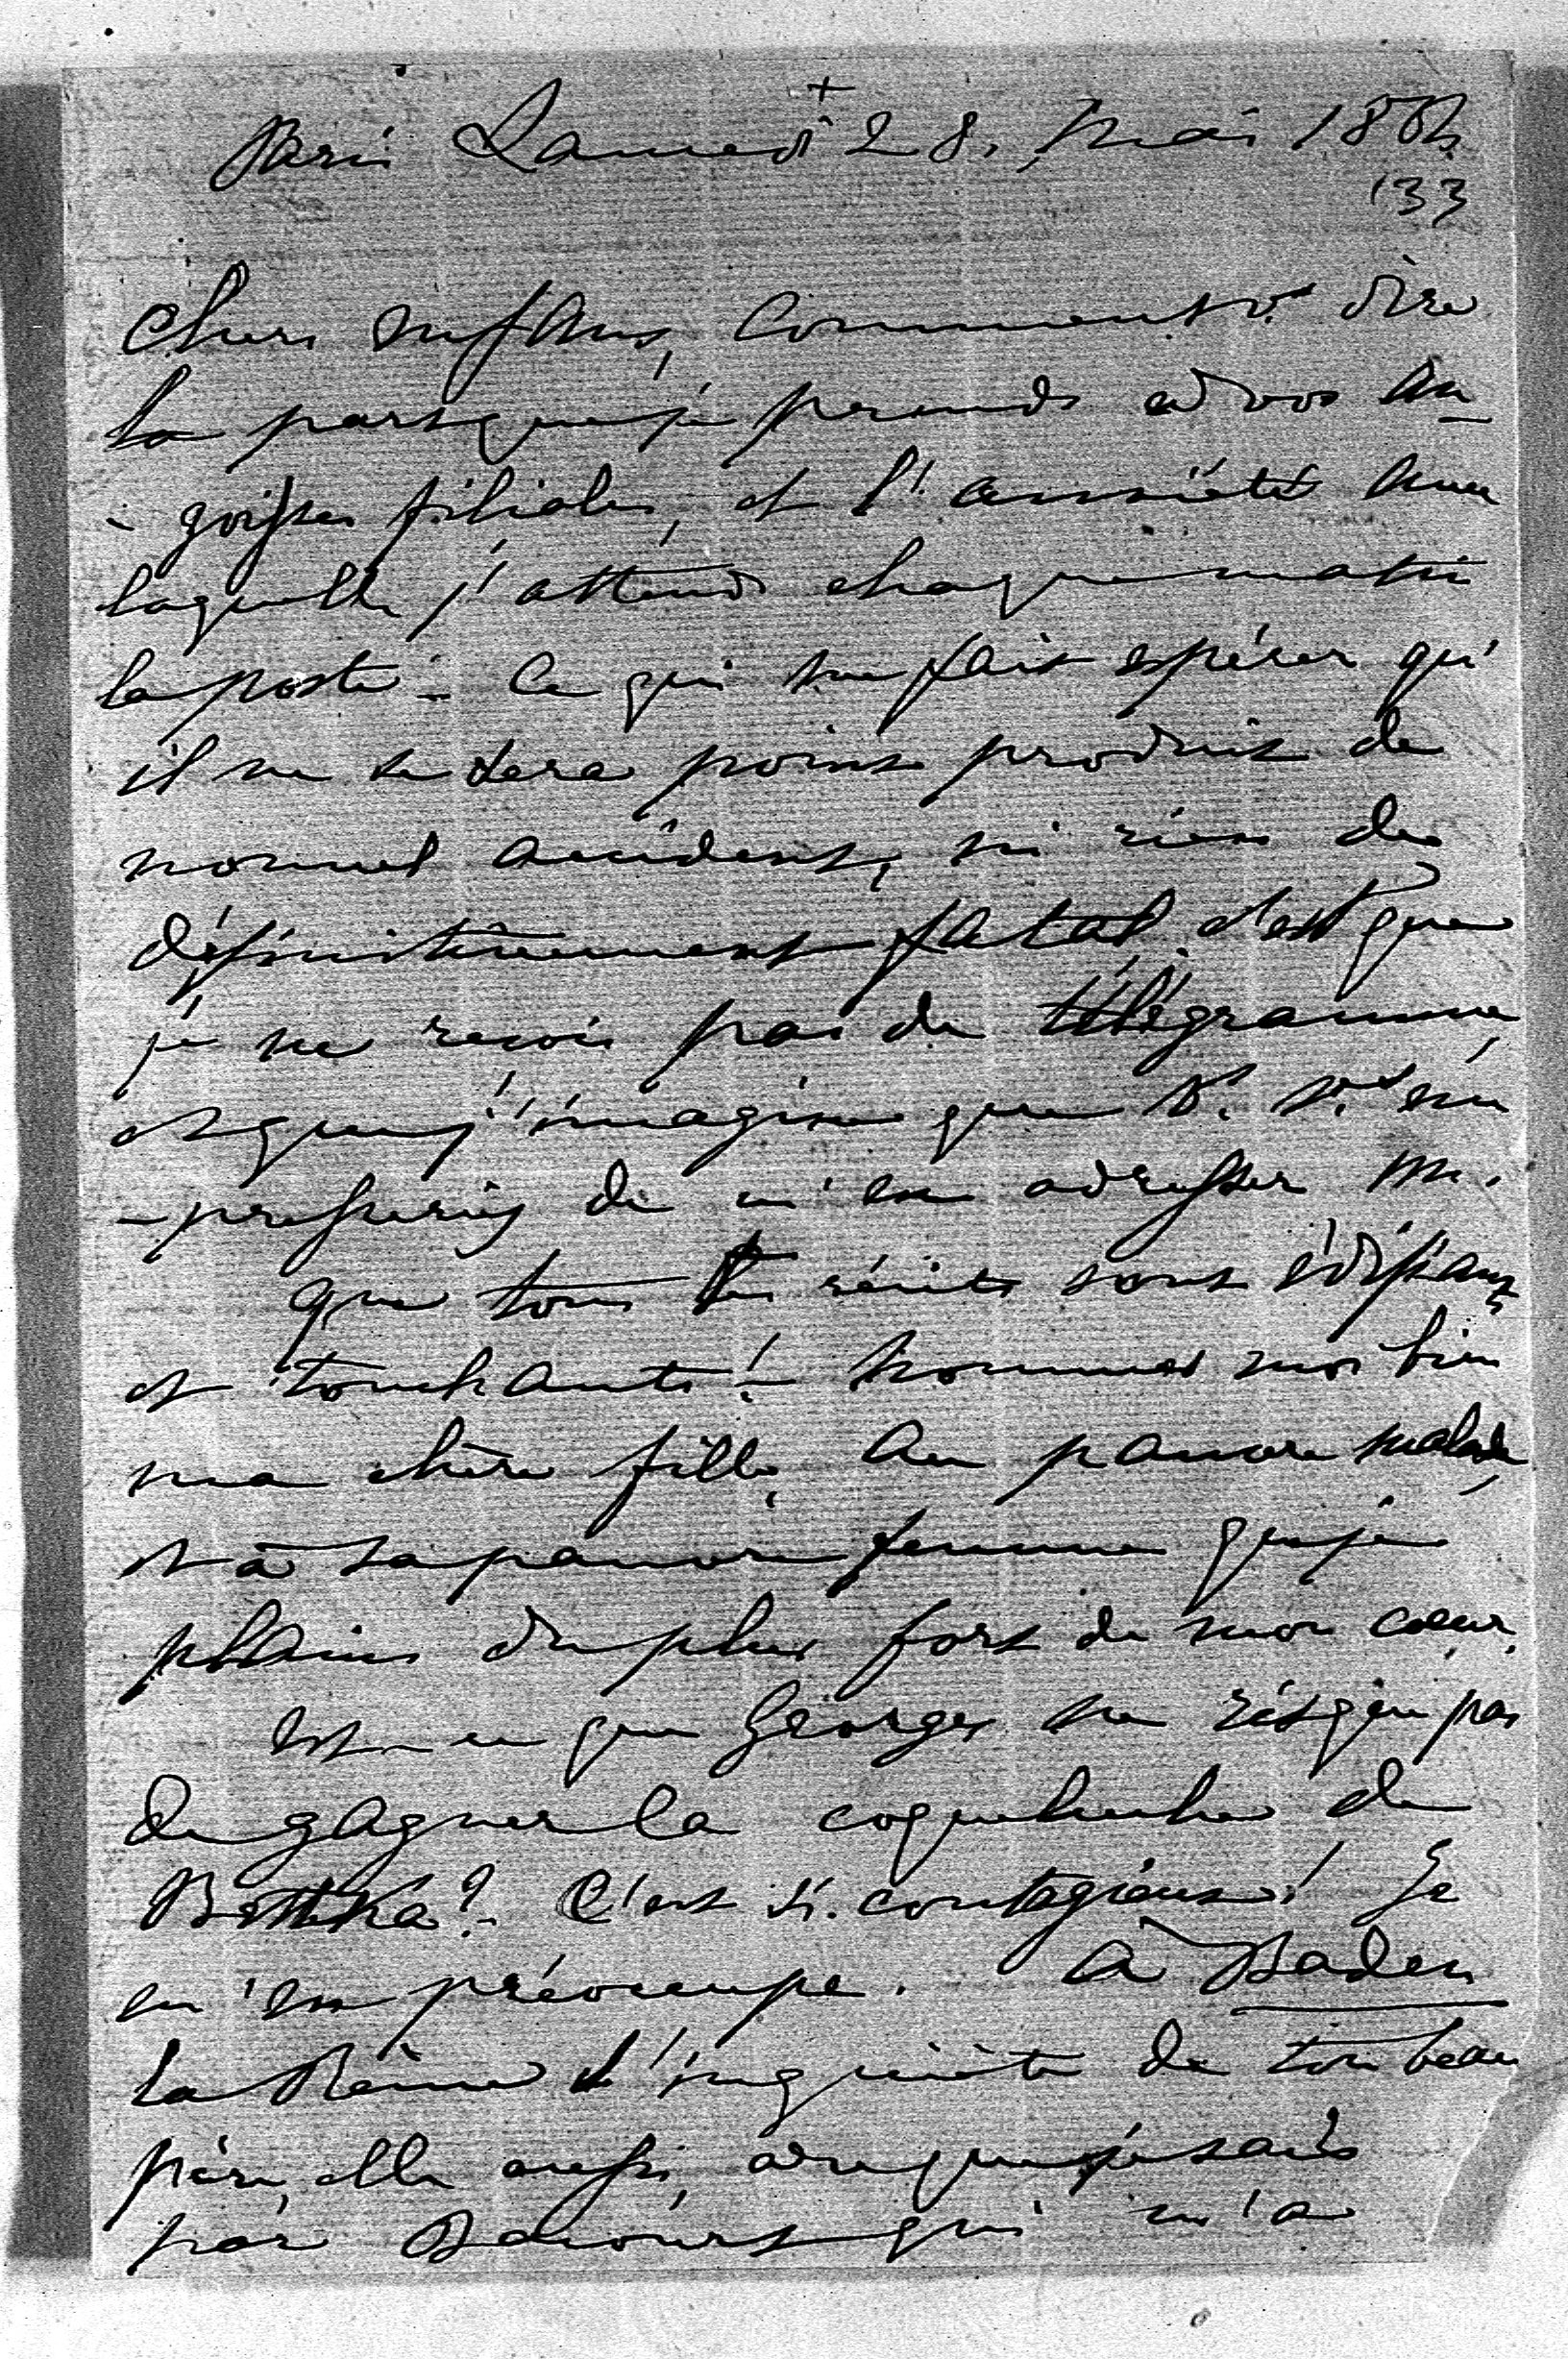 +
Paris Samedi 28. Mai 1864
133
Chers enfans, comment vs dire
la part que je prends à vos an-
-goisses filiales, et l'anxiété avec
laquelle j'attends chaque matin
la poste - Ce qui me fait espérer qu'
il ne se sera point produit de
nouvel accident, ni rien de
définitivement fatal, c'est que
je ne reçois pas de télégramme,
et que j'imagine que v. vs em
-presseriez de m'en adresser un.
Que tous tes récits sont édifians
et touchants! - Nommes moi bien
ma chère fille, au pauvre malade,
et à sa pauvre femme que je
plains du plus fort de mon cœur.
Est-ce que Georges ne risque pas
de gagner la coqueluche de
Bettka? - C'est si contagieux! Je
m'en préoccupe. à Baden
la Reine s'inquiète de ton beau
père, elle aussi, à ce que je sais
par Bacourt qui m'a